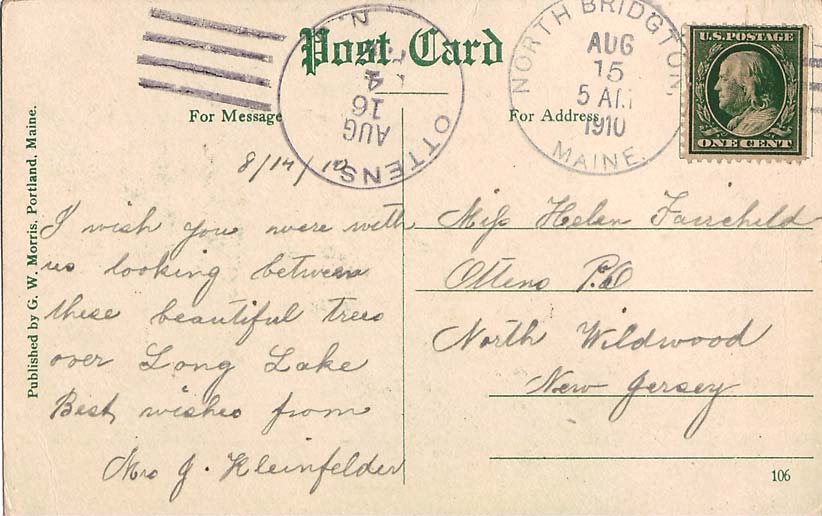 Post Card
For Message
For Address
NORTH BRIDGTON
AUG
15
5 AM
1910
MAINE.
OTTENS
AUG
16
4
N.
U.S. POSTAGE
ONE CENT
8/14/10
I wish you were with
us looking between
these beautiful trees
over Long Lake
Best wishes from
Mrs J. Kleinfelder
Miss Helen Fairchild
Ottens P.O
North Wildwood
New Jersey
Published by G. W. Morris, Portland, Maine.
106